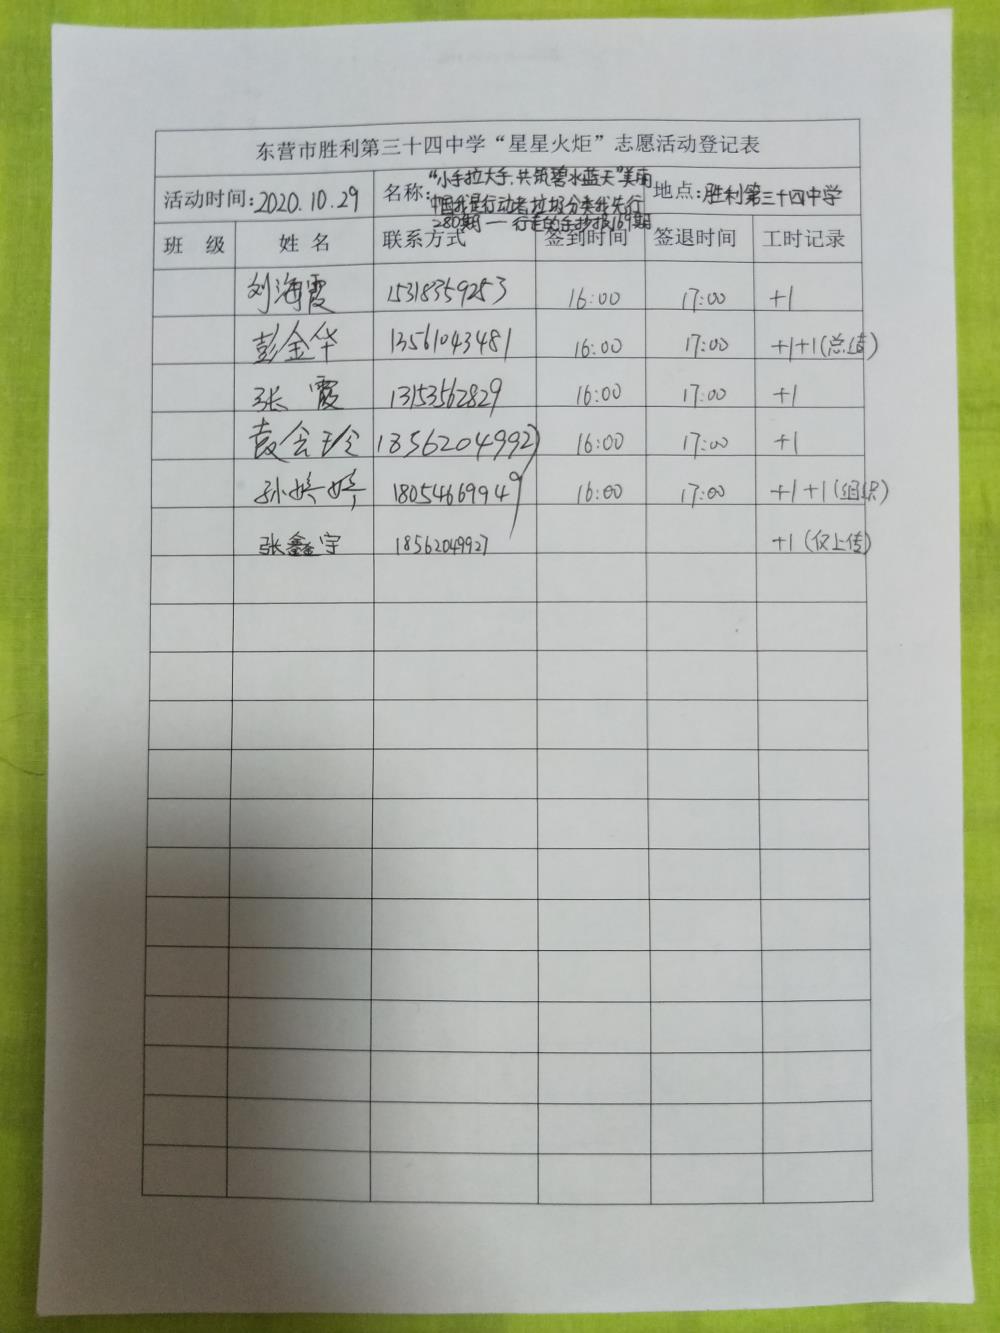 东营市胜利第三十四中学“星星火炬”志愿活动登记表
活动时间:2020.10.29 名称:“小手拉大手,共筑碧水蓝天”美丽 地点:胜利第三十四中学
中国我是行动者 垃圾分类我先行
280期——行走的手抄报169期
班 级 姓 名 联系方式 签到时间 签退时间 工时记录
刘海霞 15318359253 16:00 17:00 +1
彭金华 13561043481 16:00 17:00 +1+1(总结)
张霞 13153562829 16:00 17:00 +1
袁会玲 18562049927 16:00 17:00 +1
孙婷婷 18054669949 16:00 17:00 +1+1(组织)
张鑫宇 18562049927 +1(仅上传)